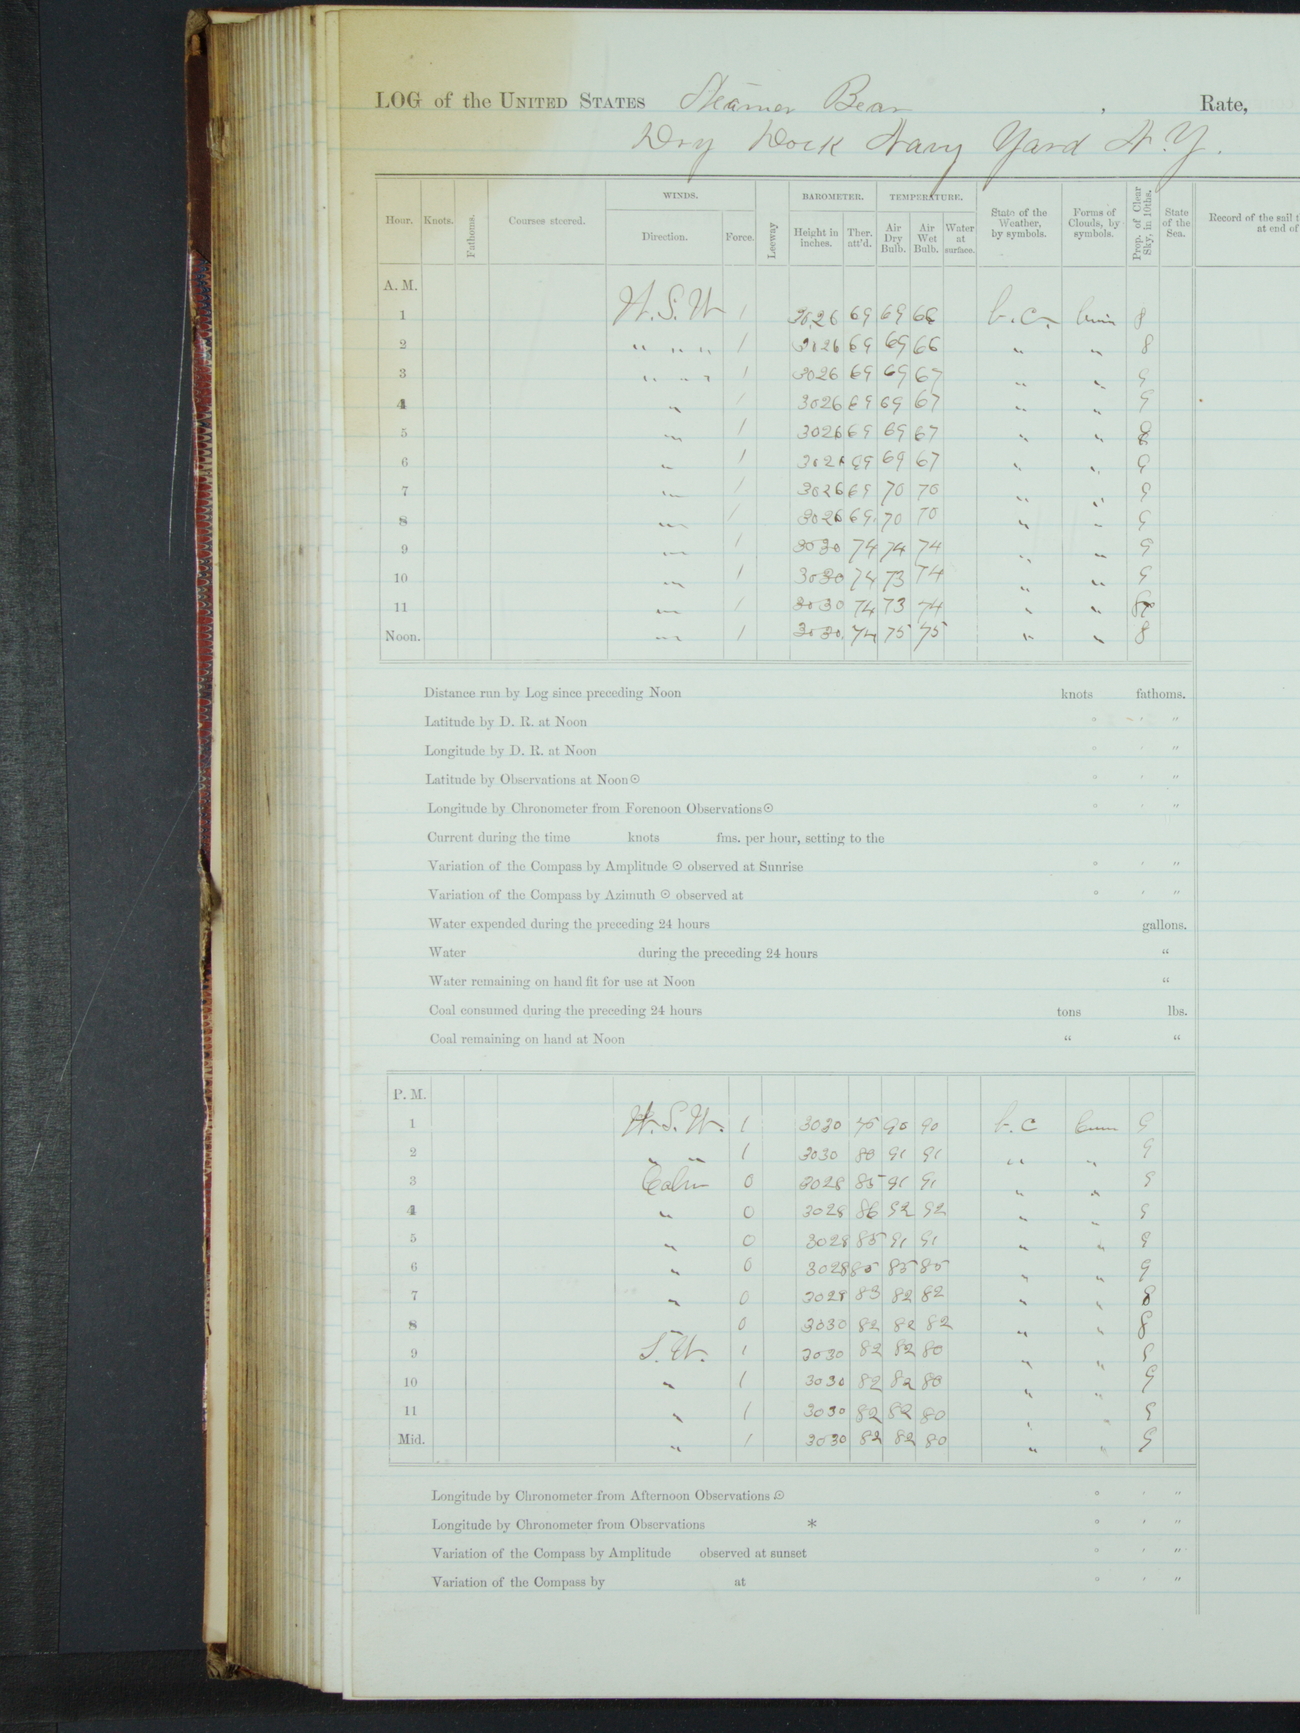 LOG of the UNITED STATES Steamer Bear , Rate,
Dry Dock Navy Yard N.Y.
Hour. Knots. Fathoms. Courses steered. WINDS. Direction. Force. Leeway BAROMETER. Height in inches. Ther. att'd. TEMPERATURE. Air Dry Bulb. Air Wet Bulb. Water at surface. State of the Weather, by symbols. Forms of Clouds, by symbols. Prop. of Clear Sky, in 10ths. State of the Sea. Record of the sail
at end of
A. M.
1 W.S.W 1 30.26 69 69 66 b.c. Cum 8
2 " " " 1 3026 69 69 66 " " 8
3 " " " 1 3026 69 69 67 " " 9
4 " 1 3026 69 69 67 " " 9
5 " 1 3026 69 69 67 " "
6 " 1 3026 69 69 67 " " 9
7 " 1 3026 69 70 70 " " 9
8 " 1 3026 69 70 70 " " 9
9 " 1 3030 74 74 74 " " 9
10 " 1 3030 74 73 74 " " 9
11 " 1 3030 74 73 74 " "
Noon. " 1 3030 74 75 75 " " 8
Distance run by Log since preceding Noon knots fathoms.
Latitude by D. R. at Noon ° ' "
Longitude by D. R. at Noon ° ' "
Latitude by Observations at Noon ☉ ° ' "
Longitude by Chronometer from Forenoon Observations ☉ ° ' "
Current during the time knots fms. per hour, setting to the
Variation of the Compass by Amplitude ☉ observed at Sunrise ° ' "
Variation of the Compass by Azimuth ☉ observed at ° ' "
Water expended during the preceding 24 hours gallons.
Water during the preceding 24 hours "
Water remaining on hand fit for use at Noon "
Coal consumed during the preceding 24 hours tons lbs.
Coal remaining on hand at Noon " "
P. M.
1 W.S.W. 1 3030 75 90 90 b.c Cum 9
2 " " 1 3030 80 91 91 " " 9
3 Calm 0 3028 85 91 91 " " 9
4 " 0 3028 86 92 92 " " 9
5 " 0 3028 85 91 91 " " 9
6 " 0 3028 85 85 85 " " 9
7 " 0 3028 83 82 82 " " 8
8 " 0 3030 82 82 82 " " 8
9 S.W. 1 3030 82 82 80 " " 9
10 " 1 3030 82 82 80 " " 9
11 " 1 3030 82 82 80 " " 9
Mid. " 1 3030 82 82 80 " " 9
Longitude by Chronometer from Afternoon Observations ☉ ° ' "
Longitude by Chronometer from Observations * ° ' "
Variation of the Compass by Amplitude observed at sunset ° ' "
Variation of the Compass by at ° ' "